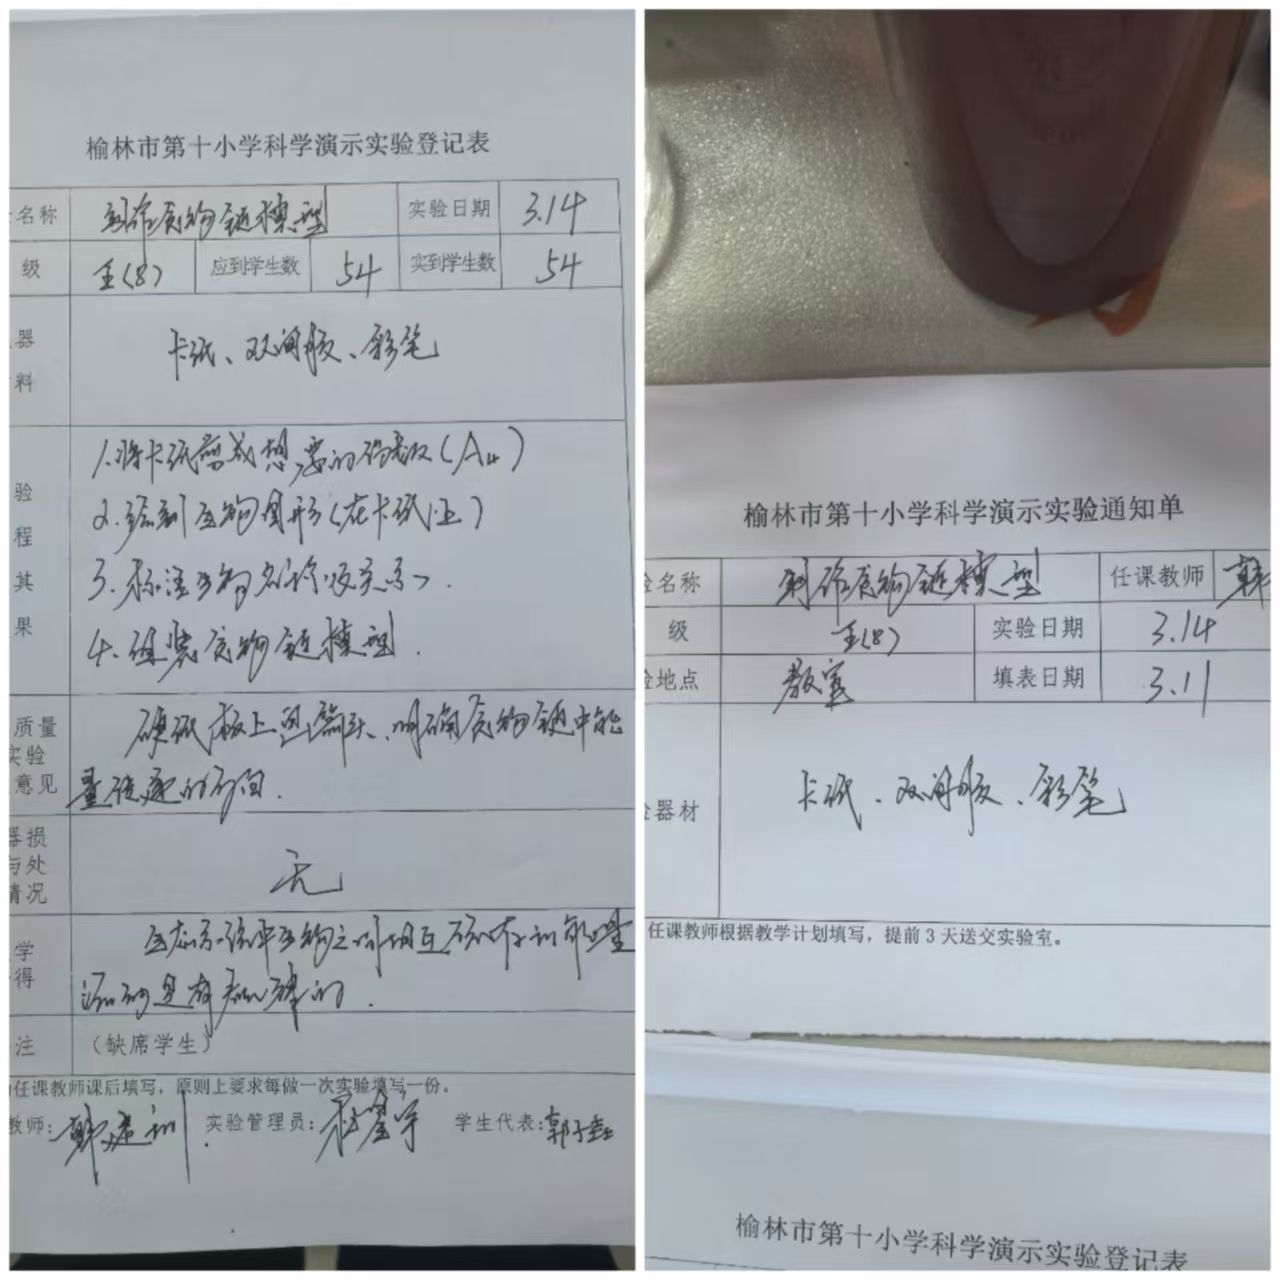 榆林市第十小学科学演示实验登记表
名称 制作食物链模型 实验日期 3.14
级 五(8) 应到学生数 54 实到学生数 54
器
料
卡纸、双面胶、彩笔
验
程
其
果
1.将卡纸剪成想要的(A4)
2.绘制生物图形(在卡纸上)
3.标注生物名称及关系.
4.组装食物链模型.
质量
实验
意见
硬纸板上画箭头、明确食物链中能
量传递的方向.
器损
与处
情况
无
学
得
生态系统中生物之间相互依存和能量
流动是有规律的.
注 (缺席学生)
任课教师课后填写，原则上要求每做一次实验填写一份。
教师: 实验管理员: 学生代表:
榆林市第十小学科学演示实验通知单
验名称 制作食物链模型 任课教师 韩
级 五(8) 实验日期 3.14
验地点 教室 填表日期 3.11
验器材 卡纸、双面胶、彩笔
任课教师根据教学计划填写，提前3天送交实验室。
榆林市第十小学科学演示实验登记表